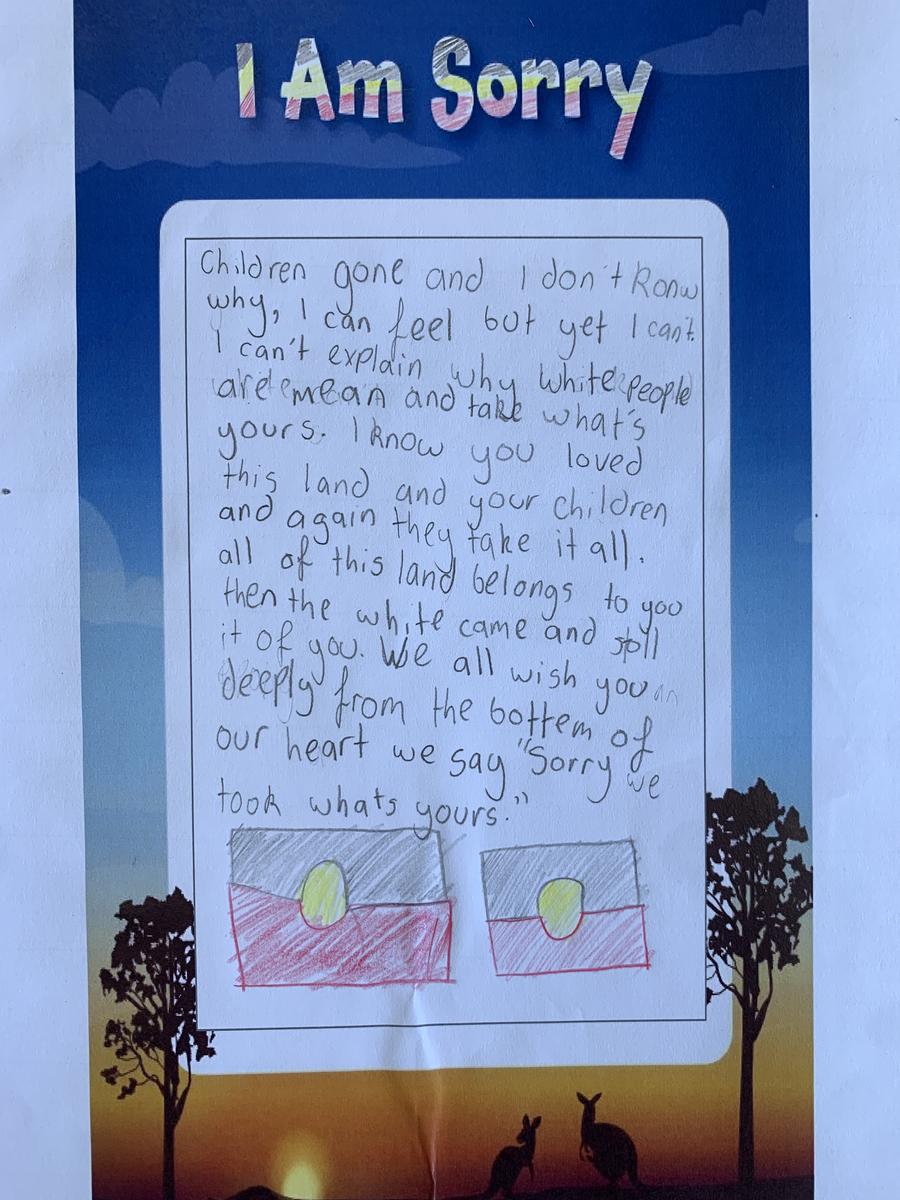 I Am Sorry
Children gone and I don't Ronw
why, I can feel but yet I can't.
I can't explain why white people
are mean and take what's
yours. I know you loved
this land and your children
and again they take it all.
all of this land belongs to you
then the white came and
it of you. We all wish you
deeply from the bottem of
our heart we say "Sorry we
took whats yours."